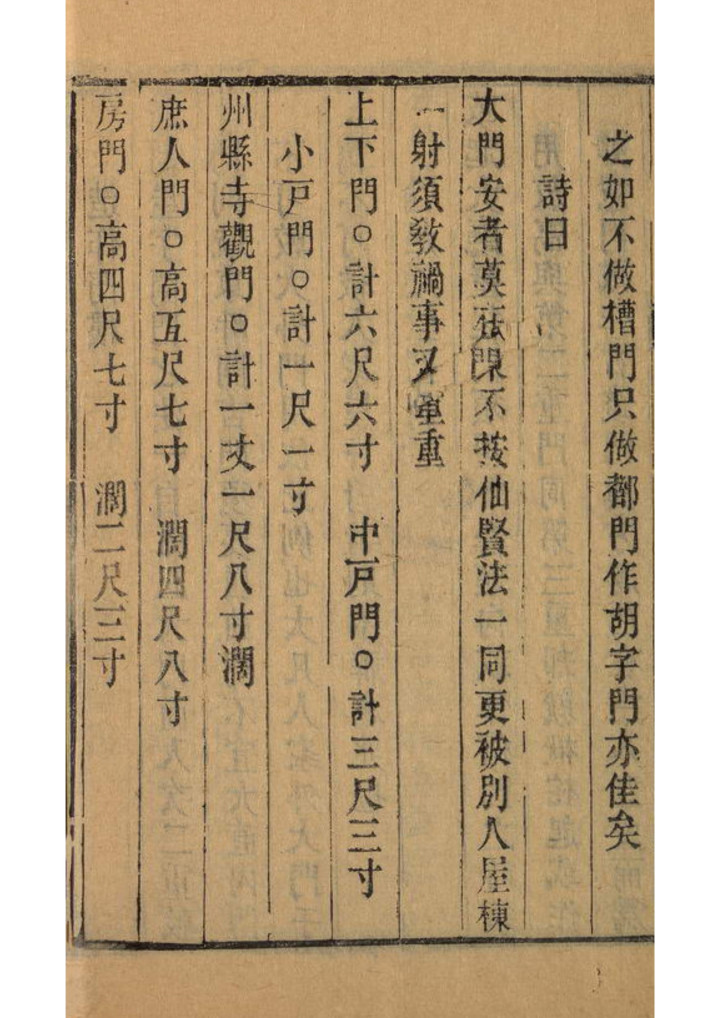 之如不做槽門只做都門作胡字門亦佳矣
詩曰
大門安者莫在東不按仙賢法一同更被別人屋棟
一射須教禍事又重重
上下門○計六尺六寸　中戸門○計三尺三寸
小戸門○計一尺一寸
州縣寺觀門○計一丈一尺八寸濶
庶人門○高五尺七寸　濶四尺八寸
房門○高四尺七寸　濶二尺三寸